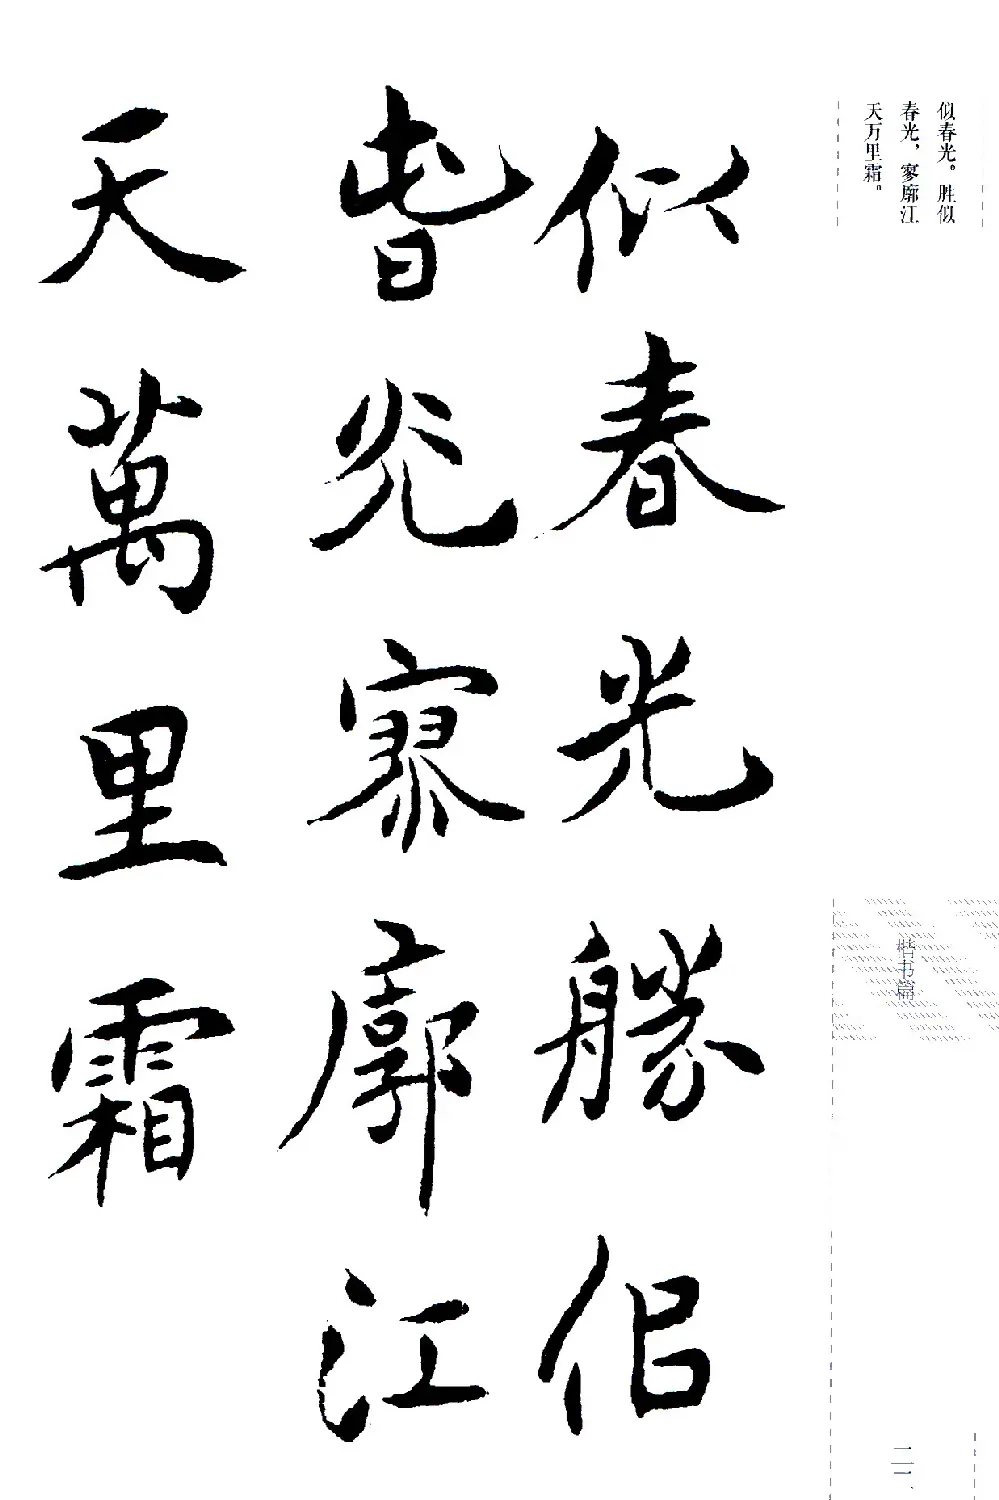 似春光。胜似
春光，寥廓江
天万里霜。
似春光勝侣
旾光寥廓江
天萬里霜
楷书篇